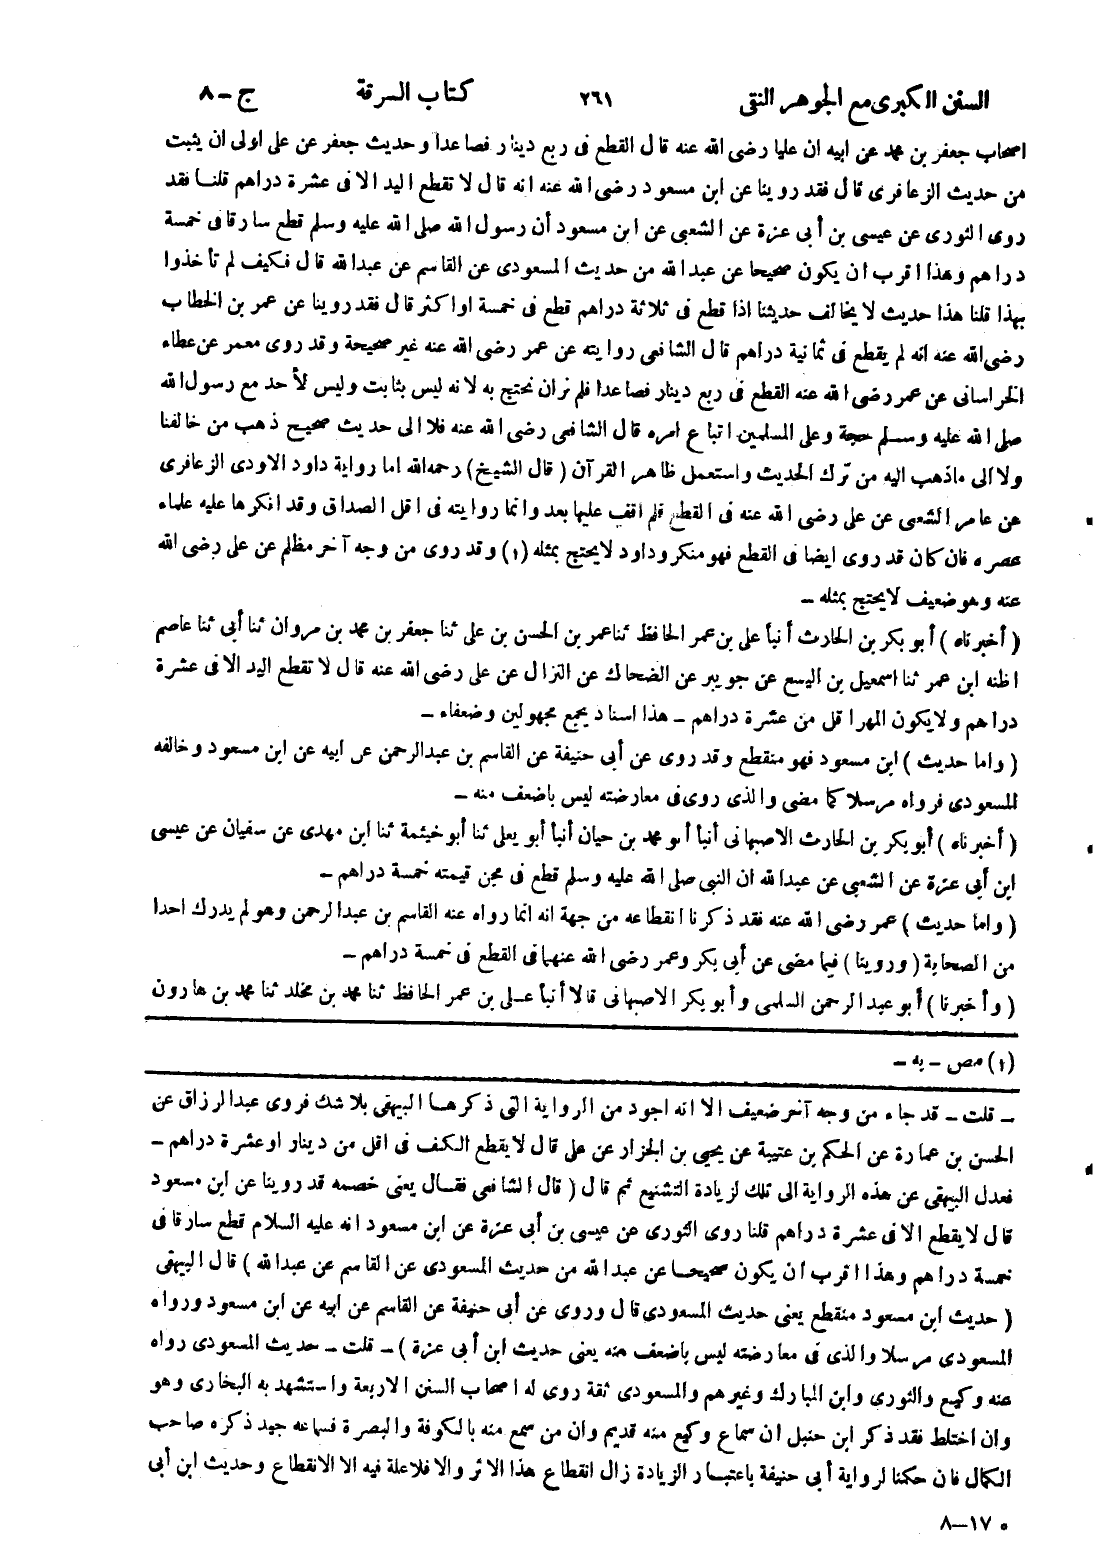 السنن الكبرى مع الجوهر النقى ٢٦١ كتاب السرقة ج-٨
اصحاب جعفر بن محمد عن ابيه ان عليا رضى الله عنه قال القطع فى ربع دينار فصاعدا وحديث جعفر عن على اولى ان يثبت
من حديث الزعافرى قال فقد روينا عن ابن مسعود رضى الله عنه انه قال لا تقطع اليد الا فى عشرة دراهم قلنا فقد
روى الثورى عن عيسى بن أبى عزة عن الشعبى عن ابن مسعود أن رسول الله صلى الله عليه وسلم قطع سارقا فى خمسة
دراهم وهذا اقرب ان يكون صحيحا عن عبد الله من حديث المسعودى عن القاسم عن عبدالله قال فكيف لم تأخذوا
بهذا قلنا هذا حديث لا يخالف حديثنا اذا قطع فى ثلاثة دراهم قطع فى خمسة او اكثر قال فقد روينا عن عمر بن الخطاب
رضى الله عنه انه لم يقطع فى ثمانية دراهم قال الشافعى روايته عن عمر رضى الله عنه غير صحيحة وقد روى معمر عن عطاء
الخراسانى عن عمر رضى الله عنه القطع فى ربع دينار فصاعدا فلم نر ان نحتج به لانه ليس بثابت وليس لأحد مع رسول الله
صلى الله عليه وسلم حجة وعلى المسلمين اتباع امره قال الشافعى رضى الله عنه فلا الى حديث صحيح ذهب من خالفنا
ولا الى ما ذهب اليه من ترك الحديث واستعمل ظاهر القرآن ( قال الشيخ ) رحمه الله اما رواية داود الاودى الزعافرى
عن عامر الشعبى عن على رضى الله عنه فى القطع فلم اقف عليها بعد وانما روايته فى اقل الصداق وقد انكرها عليه علماء
عصره فان كان قد روى ايضا فى القطع فهو منكر وداود لا يحتج بمثله (١) وقد روى من وجه آخر مظلم عن على رضى الله
عنه وهو ضعيف لا يحتج بمثله –
( أخبرناه ) أبو بكر بن الحارث أنبأ على بن عمر الحافظ ثنا عمر بن الحسن بن على ثنا جعفر بن محمد بن مروان ثنا أبى ثنا عاصم
اظنه ابن عمر ثنا اسمعيل بن اليسع عن جويبر عن الضحاك عن النزال عن على رضى الله عنه قال لا تقطع اليد الا فى عشرة
دراهم ولا يكون المهر اقل من عشرة دراهم – هذا اسناد يجمع مجهولين وضعفاء –
( واما حديث ) ابن مسعود فهو منقطع وقد روى عن أبى حنيفة عن القاسم بن عبدالرحمن عن ابيه عن ابن مسعود وخالفه
المسعودى فرواه مرسلا كما مضى والذى روى فى معارضته ليس باضعف منه –
( أخبرناه ) أبو بكر بن الحارث الاصبهانى أنبأ أبو محمد بن حيان أنبأ أبو يعلى ثنا أبو خيثمة ثنا ابن مهدى عن سفيان عن عيسى
ابن أبى عزة عن الشعبى عن عبدالله ان النبى صلى الله عليه وسلم قطع فى مجن قيمته خمسة دراهم –
( واما حديث ) عمر رضى الله عنه فقد ذكرنا انقطاعه من جهة انه انما رواه عنه القاسم بن عبدالرحمن وهو لم يدرك احدا
من الصحابة ( وروينا ) فيما مضى عن أبى بكر وعمر رضى الله عنهما فى القطع فى خمسة دراهم –
( وأخبرنا ) أبو عبد الرحمن السلمى وأبو بكر الاصبهانى قالا أنبأ على بن عمر الحافظ ثنا محمد بن مخلد ثنا محمد بن هارون
(١) مص – به –
– قلت – قد جاء من وجه آخر ضعيف الا انه اجود من الرواية التى ذكرها البيهقى بلا شك فروى عبدالرزاق عن
الحسن بن عمارة عن الحكم بن عتيبة عن يحيى بن الجزار عن على قال لا يقطع الكف فى اقل من دينار او عشرة دراهم –
فعدل البيهقى عن هذه الرواية الى تلك لزيادة التشنيع ثم قال ( قال الشافعى فقال يعنى خصمه قد روينا عن ابن مسعود
قال لا يقطع الا فى عشرة دراهم قلنا روى الثورى عن عيسى بن أبى عزة عن ابن مسعود انه عليه السلام قطع سارقا فى
خمسة دراهم وهذا اقرب ان يكون صحيحا عن عبد الله من حديث المسعودى عن القاسم عن عبدالله ) قال البيهقى
( حديث ابن مسعود منقطع يعنى حديث المسعودى قال وروى عن أبى حنيفة عن القاسم عن ابيه عن ابن مسعود ورواه
المسعودى مرسلا والذى فى معارضته ليس باضعف منه يعنى حديث ابن أبى عزة ) – قلت – حديث المسعودى رواه
عنه وكيع والثورى وابن المبارك وغيرهم والمسعودى ثقة روى له اصحاب السنن الاربعة واستشهد به البخارى وهو
وان اختلط فقد ذكر ابن حنبل ان سماع وكيع منه قديم وان من سمع منه بالكوفة والبصرة فسماعه جيد ذكره صاحب
الكمال فان حكمنا لرواية أبى حنيفة باعتبار الزيادة زال انقطاع هذا الاثر والا فلا علة فيه الا الانقطاع وحديث ابن أبى
٨—١٧ ٠